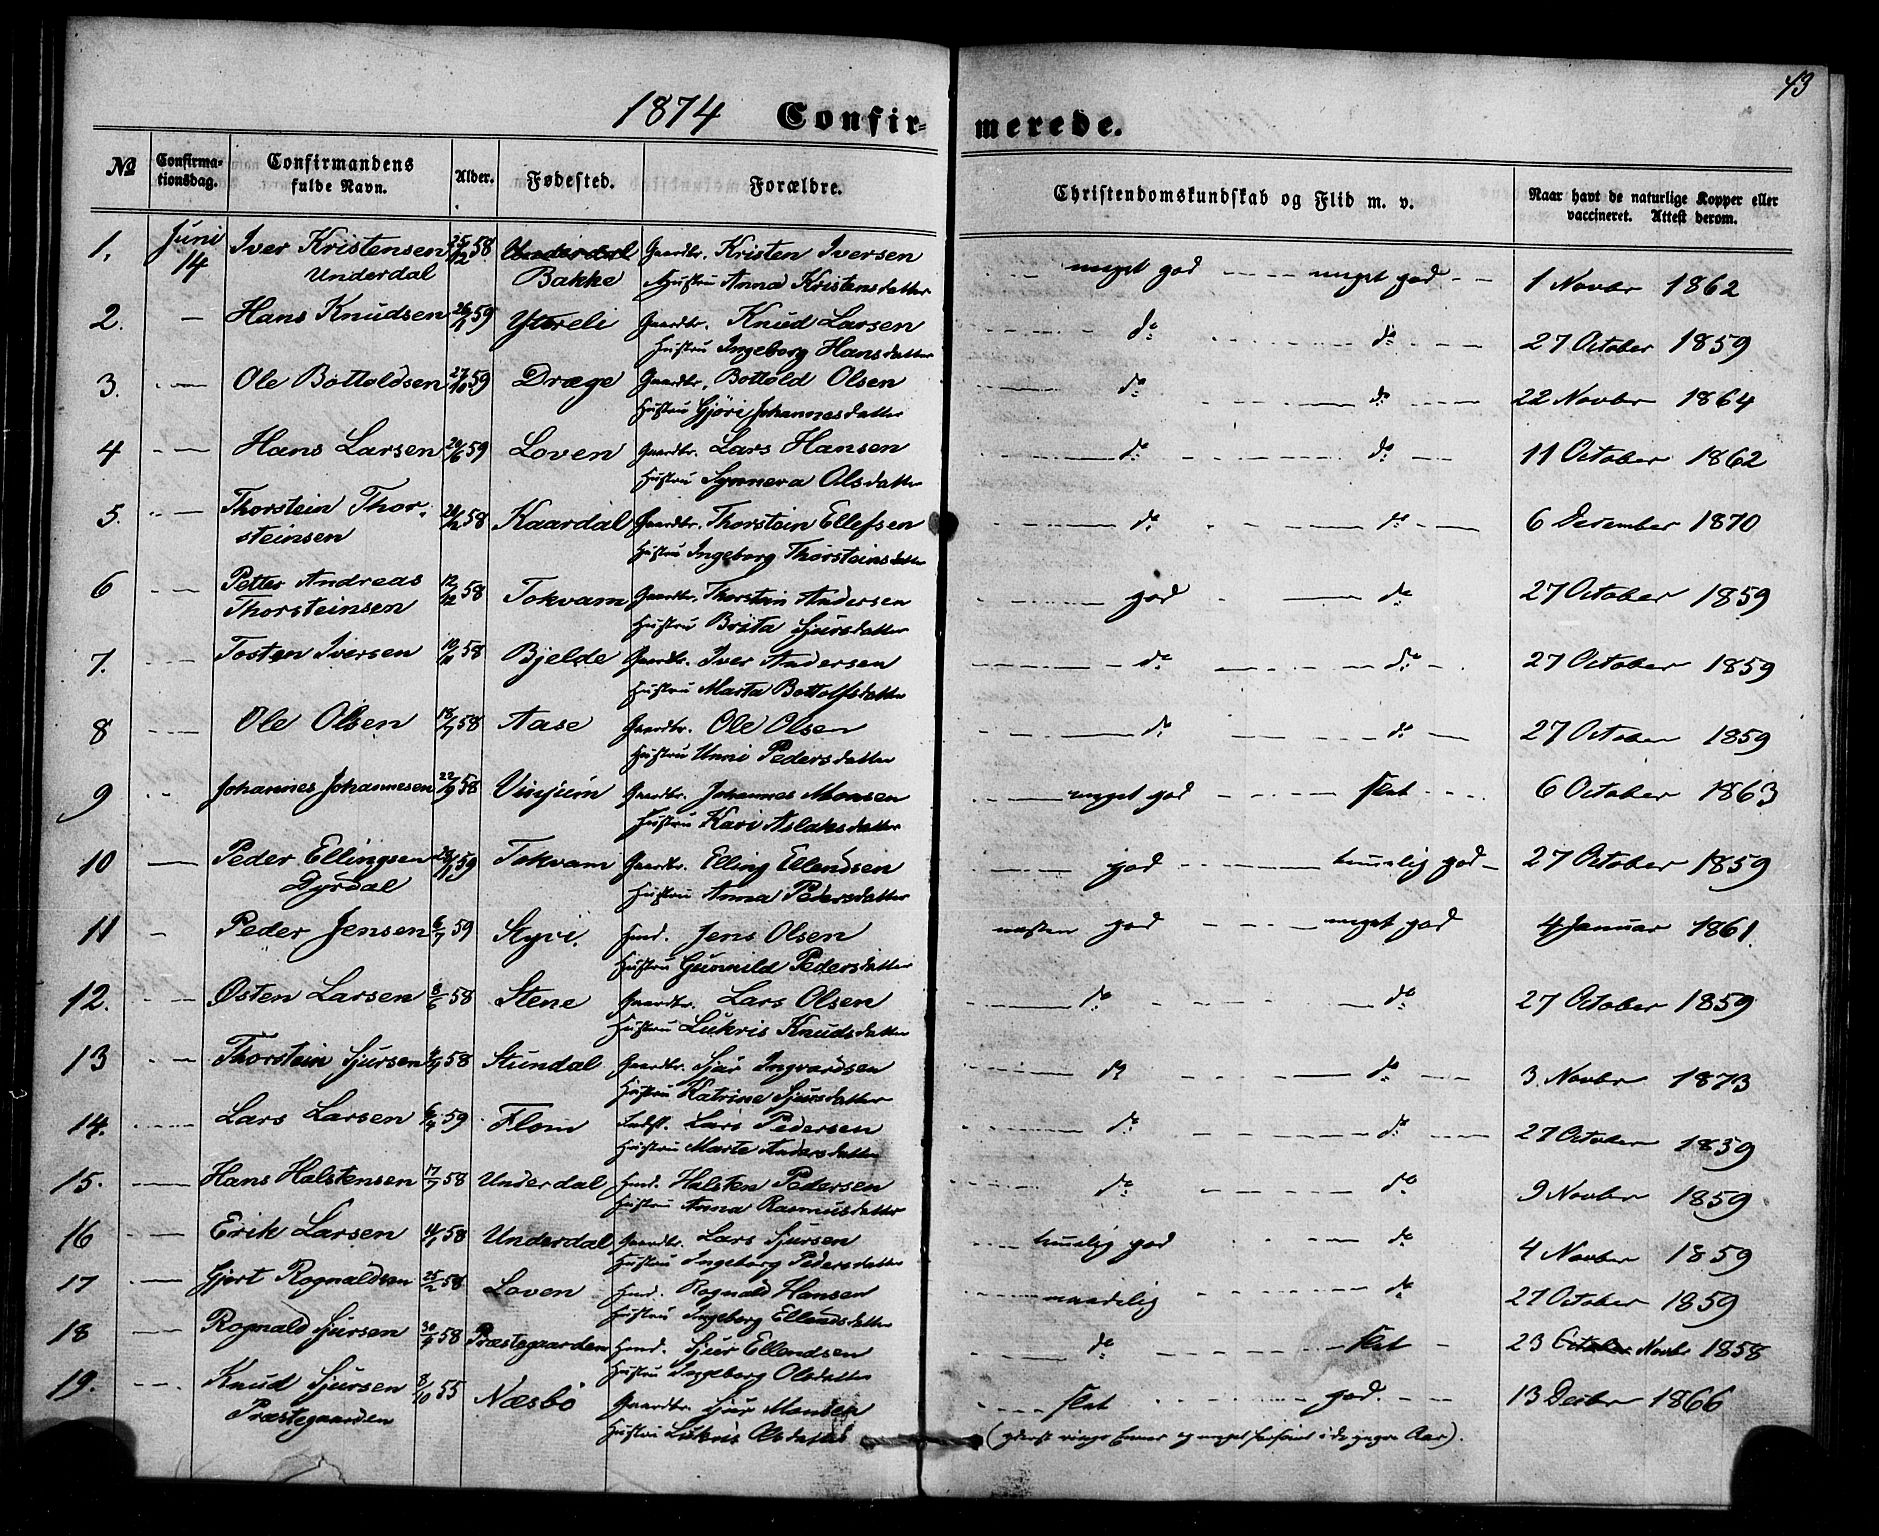 43
1874 Confir- merede.
No Confirma-tionsdag. Confirmandens fulde Navn. Alder. Fødested. Forældre. Christendomskundskab og Flid m. v. Naar havt de naturlige Kopper eller vaccineret. Attest derom.
1. Juni 14 Iver Kristensen 25/12 58 Underdal Gaardbr. Kristen Iversen meget god meget god 1 Novbr 1862
Underdal Bakke Hustru Anna Kristensdatter
2. Hans Knudsen 59 Ytreli Gaardbr. Knud Larsen do do 27 October 1859
Hustru Ingeborg Hansdatter
3. Ole Bottoldsen 27/10 59 Dræge Gaardbr. Bottold Olsen do do 22 Novbr 1864
Hustru Gjöri Johannesdatter
4 Hans Larsen 20/6 59 Loven Gaardbr. Lars Hansen do do 11 October 1862
Hustru Synneva Olsdatter
5. Thorstein Thor- 58 Kaardal Gaardbr. Thorstein Ellefsen do do 6 December 1870
steinsen Hustru Ingeborg Thorsteinsdatter
6 Petter Andreas 12/12 58 Tokvam Gaardbr. Thorstein Andersen god do 27 October 1859
Thorsteinsen Hustru Brita Sjursdatter
7. Tosten Iversen 58 Bjelde Gaardbr. Iver Andersen do do 27 October 1859
Hustru Marta Bottolfsdatter
8 Ole Olsen 18/7 58 Aase Gaardbr. Ole Olsen do do 27 October 1859
Hustru Unni Pedersdatter
9 Johannes Johannesen 22/9 58 Vinjum Gaardbr. Johannes Monsen meget god slet 6 October 1863
Hustru Kari Aslaksdatter
10 Peder Ellingsen 59 Tokvam Gaardbr. Elling Ellendsen god temelig god 27 October 1859
Dyrdal Hustru Anna Pedersdatter
11 Peder Jensen 6/7 59 Styvi. Hmd. Jens Olsen næsten god meget god 4 Januar 1861.
Hustru Gunnild Pedersdatter
12. Østen Larsen 8/6 58 Stene Gaardbr. Lars Olsen do do 27 October 1859
Hustru Lukris Knudsdatter
13 Thorstein Sjursen 58 Stundal Gaardbr. Sjur Ingvardsen do do 3. Novbr 1873
Hustru Katrine Sjursdatter
14. Lars Larsen 59 Flom Lars Pedersen do do 27 October 1859
Hustru Marte Andersdatter
15. Hans Halstensen 17/7 58 Underdal Hmd. Halsten Pedersen do do 9 Novbr 1859
Hustru Anna Rasmusdatter
16 Erik Larsen 58 Underdal Gaardbr. Lars Sjursen temelig god do 4 Novbr 1859
Hustru Ingeborg Pedersdatter
17 Gjert Rognaldsen 25/2 58 Loven Hmd. Rognald Hansen maadelig do 27 October 1859
Hustru Ingeborg Ellendsdatter
18 Rognald Sjursen 58 Præstegaarden Hmd. Sjur Ellendsen do slet 23 October Novbr 1858
Hustru Ingeborg Olsdatter
19. Knud Sjursen 8/10 55 Næsbö Gaardbr. Sjur Monsen slet god 13 Decbr 1866
Præstegaarden Hustru Lukris Olsdatter (yderst ringe Evner og meget forsömt i de yngre Aar).